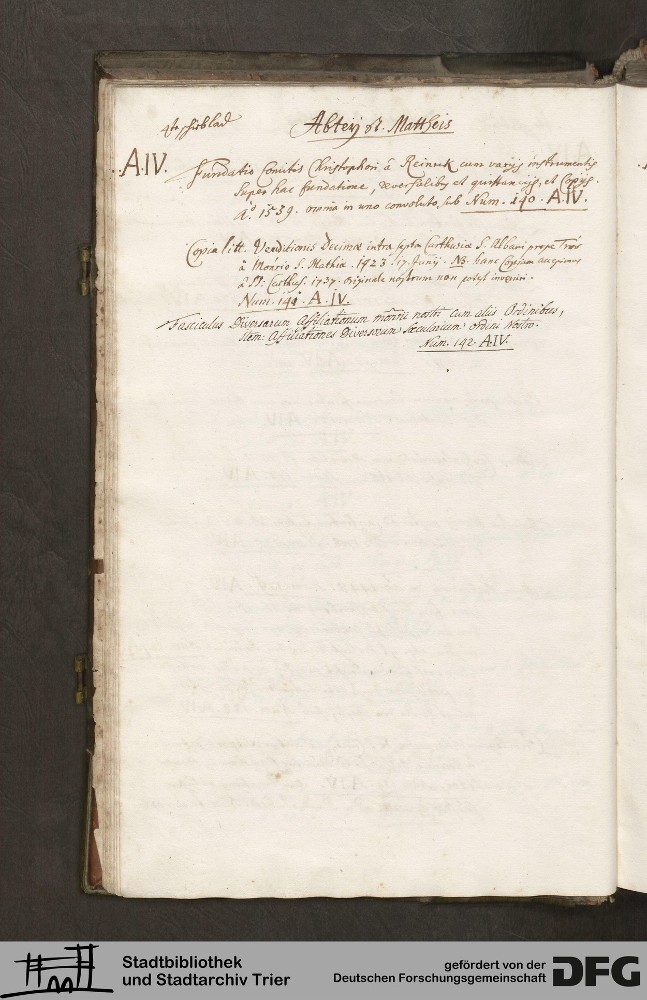 4te schiblad Abteÿ St. Mattheis
A.IV. Fundatio Comitis Christophori à Reineck cum varijs instrumentis
super hac fundatione, reversalibus et quittancijs, et Copijs.
A.o 1539. omnia in uno convoluto sub Num. 140. A.IV.
Copia litt. Venditionis Decimæ intra septa Carthusiæ S. Albani prope Trev:
à Mon'rio S. Mathiæ. 1423. 17. Junij. NB. hanc Copiam accepimus
à PP. Carthus. 1737. originale nostrum non potest inveniri.
Num. 141. A.IV.
Fasciculus Diversarum affiliationum mon'rii nostri cum aliis Ordinibus,
Item: affiliationes Diversorum sæcularium ordini nostro.
Num. 142. A.IV.
Stadtbibliothek
und Stadtarchiv Trier
gefördert von der
Deutschen Forschungsgemeinschaft
DFG